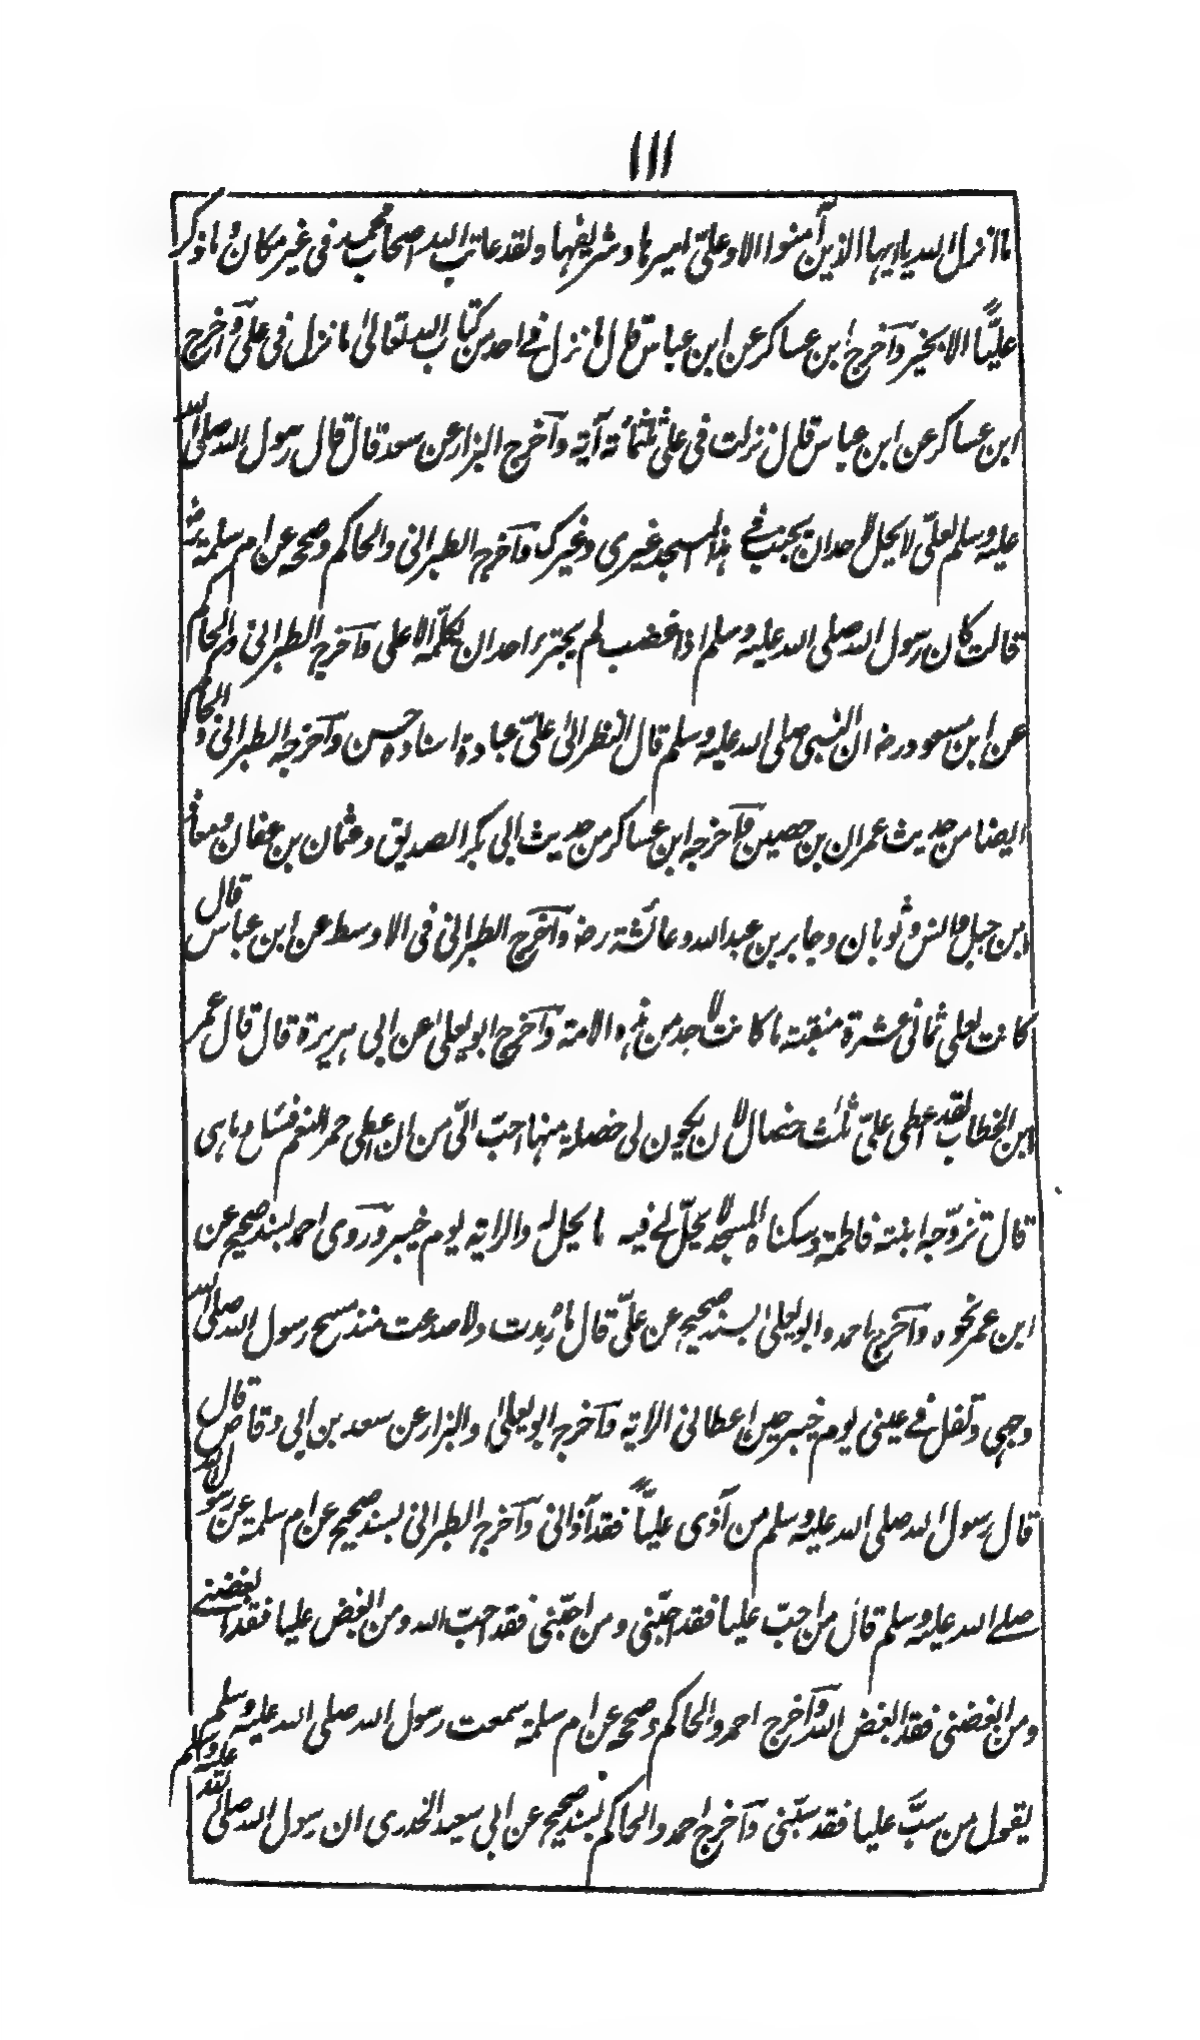 ١١١
ما انزل الله يا ايها الذين آمنوا الا وعلىّ اميرها وشريفها ولقد عاتب الله اصحاب محمد فى غير مكان وما ذكر
عليًّا الا بخير وآخرج ابن عساكر عن ابن عباس قال ما نزل فے احد من كتاب الله تعالىٰ ما نزل فى علىّ وآخرج
ابن عساكر عن ابن عباس قال نزلت فى على ثلثمائة آية وآخرج البزار عن سعد قال قال رسول الله صلى الله
عليه وسلم لعلىّ لا يحل لاحد ان يجنب فے هذا المسجد غيرى وغيرك وآخرج الطبرانى والحاكم وصححه عن ام سلمة رض
قالت كان رسول الله صلى الله عليه وسلم اذا غضب لم يجترء احد ان يكلّمه الا على وآخرج الطبرانى والحاكم
عن ابن مسعود رض ان النبى صلى الله عليه وسلم قال النظر الىٰ علىّ عبادة اسناده حسن وآخرجه الطبرانى والحاكم
ايضا من حديث عمران بن حصين وآخرجه ابن عساكر من حديث ابى بكر الصديق وعثمان بن عفان ومعاذ
ابن جبل وانس وثوبان وجابر بن عبدالله وعائشة رض وآخرج الطبرانى فى الاوسط عن ابن عباس قال
كانت لعلى ثمانى عشرة منقبته ما كانت لاحد من هذه الامة وآخرج ابو يعلىٰ عن ابى هريرة قال قال عمر
ابن الخطاب لقد اعطى علىّ ثلث خصال لان يكون لى خصلة منها احبّ الىّ من ان اعطى حمر النعم فسئل ما هى
قال تزوّجه ابنته فاطمة وسكناه المسجد لا يحلّ لے فيه ما يحل له والراية يوم خيبر وروى احمد بسند صحيح عن
ابن عمر نحوه وآخرج احمد وابو يعلىٰ بسند صحيح عن علىّ قال ما رمدت ولا صدعت منذ مسح رسول الله صلى الله
وجهى وتفل فے عينى يوم خيبر حين اعطانى الراية وآخرج ابو يعلىٰ والبزار عن سعد بن ابى وقاص قال
قال رسول الله صلى الله عليه وسلم من آذى عليًّا فقد آذانى وآخرج الطبرانى بسند صحيح عن ام سلمة عن رسول الله
صلے الله عليه وسلم قال من احبّ عليا فقد احبّنى ومن احبّنى فقد احبّ الله ومن ابغض عليا فقد ابغضنے
ومن ابغضنى فقد ابغض الله وآخرج احمد والحاكم وصححه عن ام سلمة سمعت رسول الله صلى الله عليه وسلم
يقول من سبّ عليا فقد سبّنى وآخرج احمد والحاكم بسند صحيح عن ابى سعيد الخدرى ان رسول الله صلى الله عليه وسلم